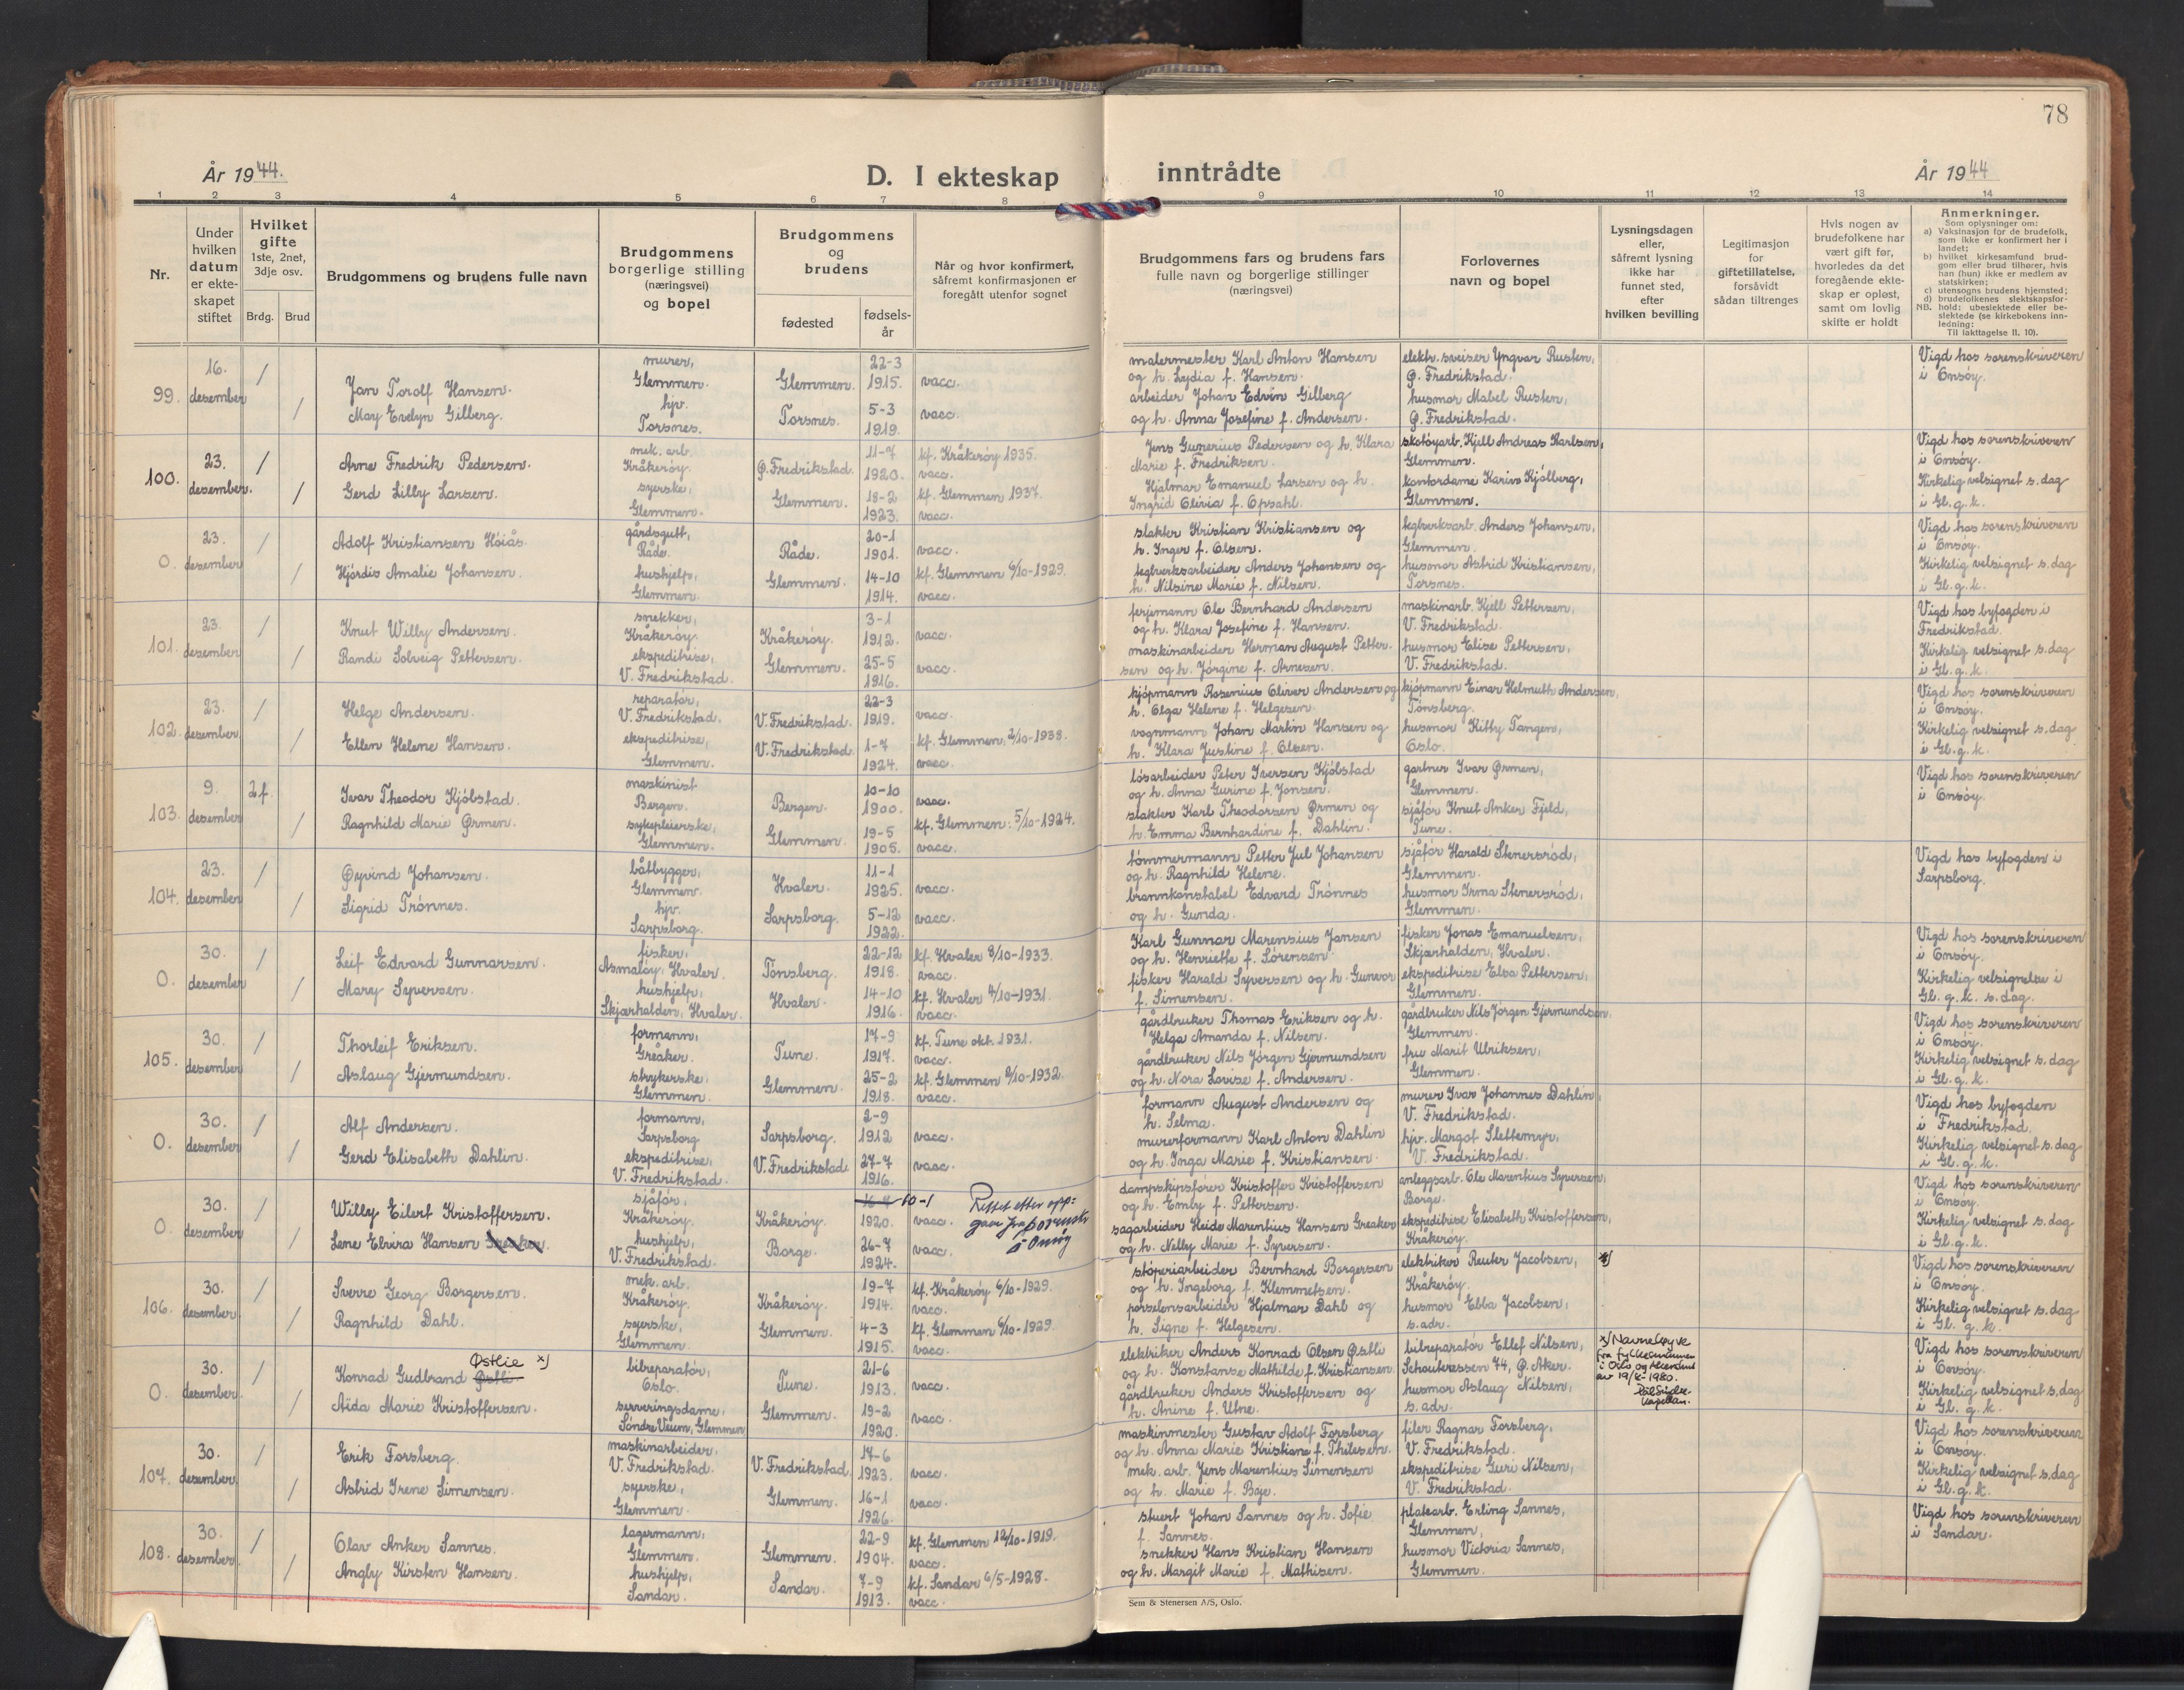 78
År 1944.
D. I ekteskap inntrådte
År 1944
1 2 3 4 5 6 7 8 9 10 11 12 13 14
Nr.
Under hvilken datum er ekte-skapet stiftet
Hvilket gifte 1ste, 2net, 3dje osv.
Brdg. Brud
Brudgommens og brudens fulle navn
Brudgommens borgerlige stilling (næringsvei) og bopel
Brudgommens og brudens
fødested fødsels-år
Når og hvor konfirmert, såfremt konfirmasjonen er foregått utenfor sognet
Brudgommens fars og brudens fars fulle navn og borgerlige stillinger (næringsvei)
Forlovernes navn og bopel
Lysningsdagen eller, såfremt lysning ikke har funnet sted, efter hvilken bevilling
Legitimasjon for giftetillatelse, forsåvidt sådan tiltrenges
Hvis nogen av brudefolkene har vært gift før, hvorledes da det foregående ekte-skap er opløst, samt om lovlig skifte er holdt
Anmerkninger.
Som oplysninger om:
a) Vaksinasjon for de brudefolk, som ikke er konfirmert her i landet;
b) hvilket kirkesamfund brud-gom eller brud tilhører, hvis han (hun) ikke er medlem av statskirken;
c) utensogns brudens hjemsted;
d) brudefolkenes slektskapsfor-hold: ubeslektede eller be-slektede (se kirkebokens inn-ledning:
NB. Til iakttagelse II, 10).
99. 16. desember / / Jan Torolf Hansen. May Evelyn Gilberg.
murer, Glemmen. hjv. Torsnes.
Glemmen. 22-3 1915. vacc.
Torsnes. 5-3 1919. vacc.
malermester Karl Anton Hansen og h. Lydia f. Hansen.
arbeider Johan Edvin Gilberg og h. Anna Josefine f. Andersen.
elektr. sveiser Yngvar Rusten, Ø. Fredrikstad.
husmor Mabel Rusten, Ø. Fredrikstad.
Vigd hos sorenskriveren i Onsøy.
100. 23. desember. / / Arne Fredrik Pedersen. Gerd Lilly Larsen.
mek. arb. Kråkerøy. syerske, Glemmen.
Ø. Fredrikstad. 11-7 1920. kf. Kråkerøy 1935. vacc.
Glemmen. 18-2 1923. kf. Glemmen 1937. vacc.
Jens Gunerius Pedersen og h. Klara Marie f. Fredriksen.
Hjalmar Emanuel Larsen og h. Ingrid Olivia f. Opsahl.
skotøyarb. Kjell Andreas Karlsen, Glemmen.
kontordame Karin Kjølberg, Glemmen.
Vigd hos sorenskriveren i Onsøy. Kirkelig velsignet s. dag i Gl. g. k.
0. 23. desember / / Adolf Kristiansen Høiås. Hjørdis Amalie Johansen.
gårdsgutt, Råde. hushjelp, Glemmen.
Råde. 20-1 1901. vacc.
Glemmen. 14-10 1914. kf. Glemmen 6/10-1929. vacc.
slakter Kristian Kristiansen og h. Inger f. Olsen.
teglverksarbeider Anders Johansen og h. Nilsine Marie f. Nilsen.
teglverksarb. Anders Johansen, Glemmen.
husmor Astrid Kristiansen, Torsnes.
Vigd hos sorenskriveren i Onsøy. Kirkelig velsignet s. dag i Gl. g. k.
101. 23. desember / / Knut Willy Andersen. Randi Solveig Pettersen.
snekker, Kråkerøy. ekspeditrise, V. Fredrikstad.
Kråkerøy. 3-1 1912. vacc.
Glemmen. 25-5 1916. vacc.
ferjemann Ole Bernhard Andersen og h. Klara Josefine f. Hansen.
maskinarbeider Herman August Petter-sen og h. Jørgine f. Arnesen.
maskinarb. Kjell Pettersen, V. Fredrikstad.
husmor Elise Pettersen, V. Fredrikstad.
Vigd hos byfogden i Fredrikstad. Kirkelig velsignet s. dag i Gl. g. k.
102. 23. desember / / Helge Andersen. Ellen Helene Hansen.
reparatør, V. Fredrikstad. ekspeditrise, Glemmen.
V. Fredrikstad. 22-3 1919. vacc.
V. Fredrikstad. 1-7 1924. kf. Glemmen. 2/10-1938. vacc.
kjøpmann Rosenius Oliver Andersen og h. Olga Helene f. Helgesen.
vognmann Johan Martin Hansen og h. Klara Justine f. Olsen.
kjøpmann Einar Helmuth Andersen, Tønsberg.
husmor Kitty Tangen, Oslo.
Vigd hos sorenskriveren i Onsøy. Kirkelig velsignet s. dag i Gl. g. k.
103. 9. desember 2.f. / Ivar Theodor Kjølstad. Ragnhild Marie Ørmen.
maskinist Bergen. sykepleierske, Glemmen.
Bergen. 10-10 1900. vacc.
Glemmen. 19-5 1905. kf. Glemmen. 5/10-1924. vacc.
løsarbeider Peter Iversen Kjølstad og h. Anna Gurine f. Jonsen.
slakter Karl Theodorsen Ørmen og h. Emma Bernhardine f. Dahlin.
gartner Ivar Ørmen, Glemmen.
sjåfør Knut Anker Fjeld, Tune.
Vigd hos sorenskriveren i Onsøy.
104. 23. desember / / Øyvind Johansen. Sigrid Trønnes.
båtbygger, Glemmen. hjv. Sarpsborg.
Hvaler. 11-1 1925. vacc.
Sarpsborg. 5-12 1922. vacc.
tømmermann Petter Jul Johansen og h. Ragnhild Helene.
brannkonstabel Edvard Trønnes og h. Gunda.
sjåfør Harald Stenersrød, Glemmen.
husmor Irma Stenersrød, Glemmen.
Vigd hos byfogden i Sarpsborg.
0. 30. desember / / Leif Edvard Gunnarsen. Mary Syversen.
fisker, Asmaløy, Hvaler. hushjelp, Skjærhalden, Hvaler.
Tønsberg. 22-12 1918. kf. Hvaler 8/10-1933. vacc.
Hvaler. 14-10 1916. kf. Hvaler 4/10-1931. vacc.
Karl Gunnar Marensius Jansen og h. Henriette f. Sørensen.
fisker Harald Syversen og h. Gunvor f. Simensen.
fisker Jonas Emanuelsen, Skjærhalden, Hvaler.
ekspeditrise Elsa Pettersen, Glemmen.
Vigd hos sorenskriveren i Onsøy. Kirkelig velsignelse i Gl. g. k. s. dag.
105. 30. desember / / Thorleif Eriksen. Aslaug Gjermundsen.
formann, Greåker. strykerske, Glemmen.
Tune. 17-9 1917. kf. Tune okt. 1931. vacc.
Glemmen. 25-2 1918. kf. Glemmen 2/10-1932. vacc.
gårdbruker Thomas Eriksen og h. Helga Amanda f. Nilsen.
gårdbruker Nils Jørgen Gjermundsen og h. Nora Lovise f. Andersen.
gårdbruker Nils Jørgen Gjermundsen, Glemmen.
fru Marit Ulriksen, Glemmen.
Vigd hos sorenskriveren i Onsøy. Kirkelig velsignet s. dag i Gl. g. k.
0. 30. desember / / Alf Andersen. Gerd Elisabeth Dahlin.
formann, Sarpsborg ekspeditrise, V. Fredrikstad.
Sarpsborg. 2-9 1912 vacc.
V. Fredrikstad. 27-7 1916. vacc.
formann August Andersen og h. Selma.
murerformann Karl Anton Dahlin og h. Inga Marie f. Kristiansen.
murer Ivar Johannes Dahlin, V. Fredrikstad.
hjv. Margot Slettemyr, V. Fredrikstad.
Vigd hos byfogden i Fredrikstad. Kirkelig velsignet s. dag i Gl. g. k.
0. 30. desember / / Willy Eilert Kristoffersen. Lene Elvira Hansen Greaker.
sjåfør, Kråkerøy. hushjelp, V. Fredrikstad.
Kråkerøy. 10-1 1920. vacc. Rettet etter opp-gave fra sorenskr i Onsøy
Borge. 26-7 1924. vacc.
dampskipsfører Kristoffer Kristoffersen og h. Emly f. Pettersen.
sagarbeider Heide Marentius Hansen Greaker og h. Nelly Marie f. Syversen.
anleggsarb. Ole Marentius Syversen, Borge.
ekspeditrise Elisabeth Kristoffersen, Kråkerøy.
Vigd hos sorenskriveren i Onsøy. Kirkelig velsignet s. dag i Gl. g. k.
106. 30. desember / / Sverre Georg Borgersen. Ragnhild Dahl.
mek. arb. Kråkerøy. syerske, Glemmen.
Kråkerøy. 19-7 1914. kf. Kråkerøy 6/10-1929. vacc.
Glemmen. 4-3 1915. kf. Glemmen 6/10-1929. vacc.
støperiarbeider Bernhard Borgersen og h. Ingeborg f. Klemmetsen.
porselensarbeider Hjalmar Dahl og h. Signe f. Helgesen.
elektriker Reuter Jacobsen, Kråkerøy.
husmor Ebba Jacobsen, s. adr.
Vigd hos sorenskriveren i Onsøy. Kirkelig velsignet s. dag i Gl. g. k.
0. 30. desember / / Konrad Gudbrand Østli Østlie x) Aida Marie Kristoffersen.
bilreparatør, Oslo. serveringsdame, Søndre Veum, Glemmen
Tune. 21-6 1913. vacc.
Glemmen. 19-2 1920. vacc.
elektriker Anders Konrad Olsen Østli og h. Konstanse Mathilde f. Kristiansen.
gårdbruker Anders Kristoffersen og h. Anine f. Utne.
bilreparatør Ellef Nilsen, Schouterassen 74, Ø. Aker.
husmor Aslaug Nilsen, s. adr.
x) Navneløyve fra fylkesmannen i Oslo og Akershus av 19/8-1980. kapellan.
Vigd hos sorenskriveren i Onsøy. Kirkelig velsignet s. dag i Gl. g. k.
107. 30. desember / / Erik Forsberg. Astrid Irene Simensen.
maskinarbeider, V. Fredrikstad. syerske, Glemmen.
V. Fredrikstad. 17-6 1923. vacc.
Glemmen. 16-1 1926. vacc.
maskinmester Gustav Adolf Forsberg og h. Anna Marie Kristiane f. Thilesen.
mek. arb. Jens Marentius Simensen og h. Marie f. Boje.
filer Ragnar Forsberg, V. Fredrikstad.
ekspeditrise Guri Nilsen, V. Fredrikstad.
Vigd hos sorenskriveren i Onsøy. Kirkelig velsignet s. dag i Gl. g. k.
108. 30. desember. / / Olav Anker Sannes. Angby Kirsten Hansen.
lagermann, Glemmen. hushjelp, Sandar.
Glemmen. 22-9 1904. kf. Glemmen 12/10-1919. vacc.
Sandar. 7-9 1913. kf. Sandar 6/5-1928. vacc.
stuert Johan Sannes og h. Sofie f. Sannes.
snekker Hans Kristian Hansen og h. Margit Marie f. Mathisen.
platearb. Erling Sannes, Glemmen,
husmor Victoria Sannes, Glemmen.
Vigd hos sorenskriveren i Sandar.
Sem & Stenersen A/S, Oslo.